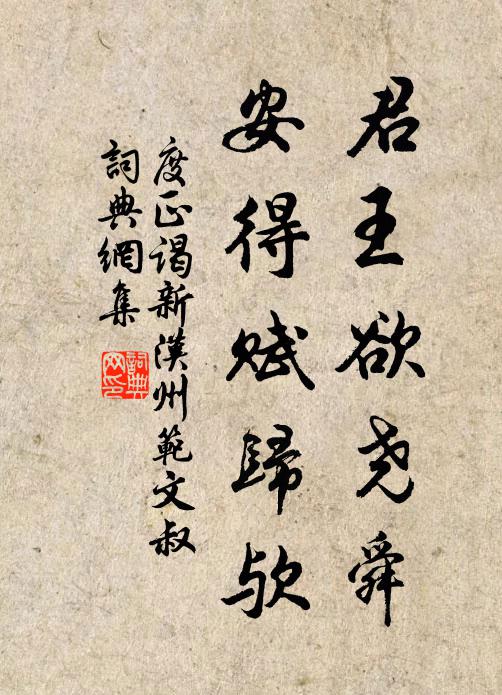 君王欲尧舜
安得賦歸欤
度正謁新漢州範文叔
詞典網集
詞典
网印